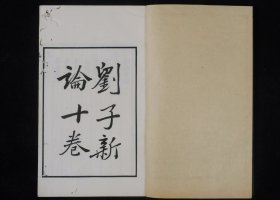 劉子新
論十卷